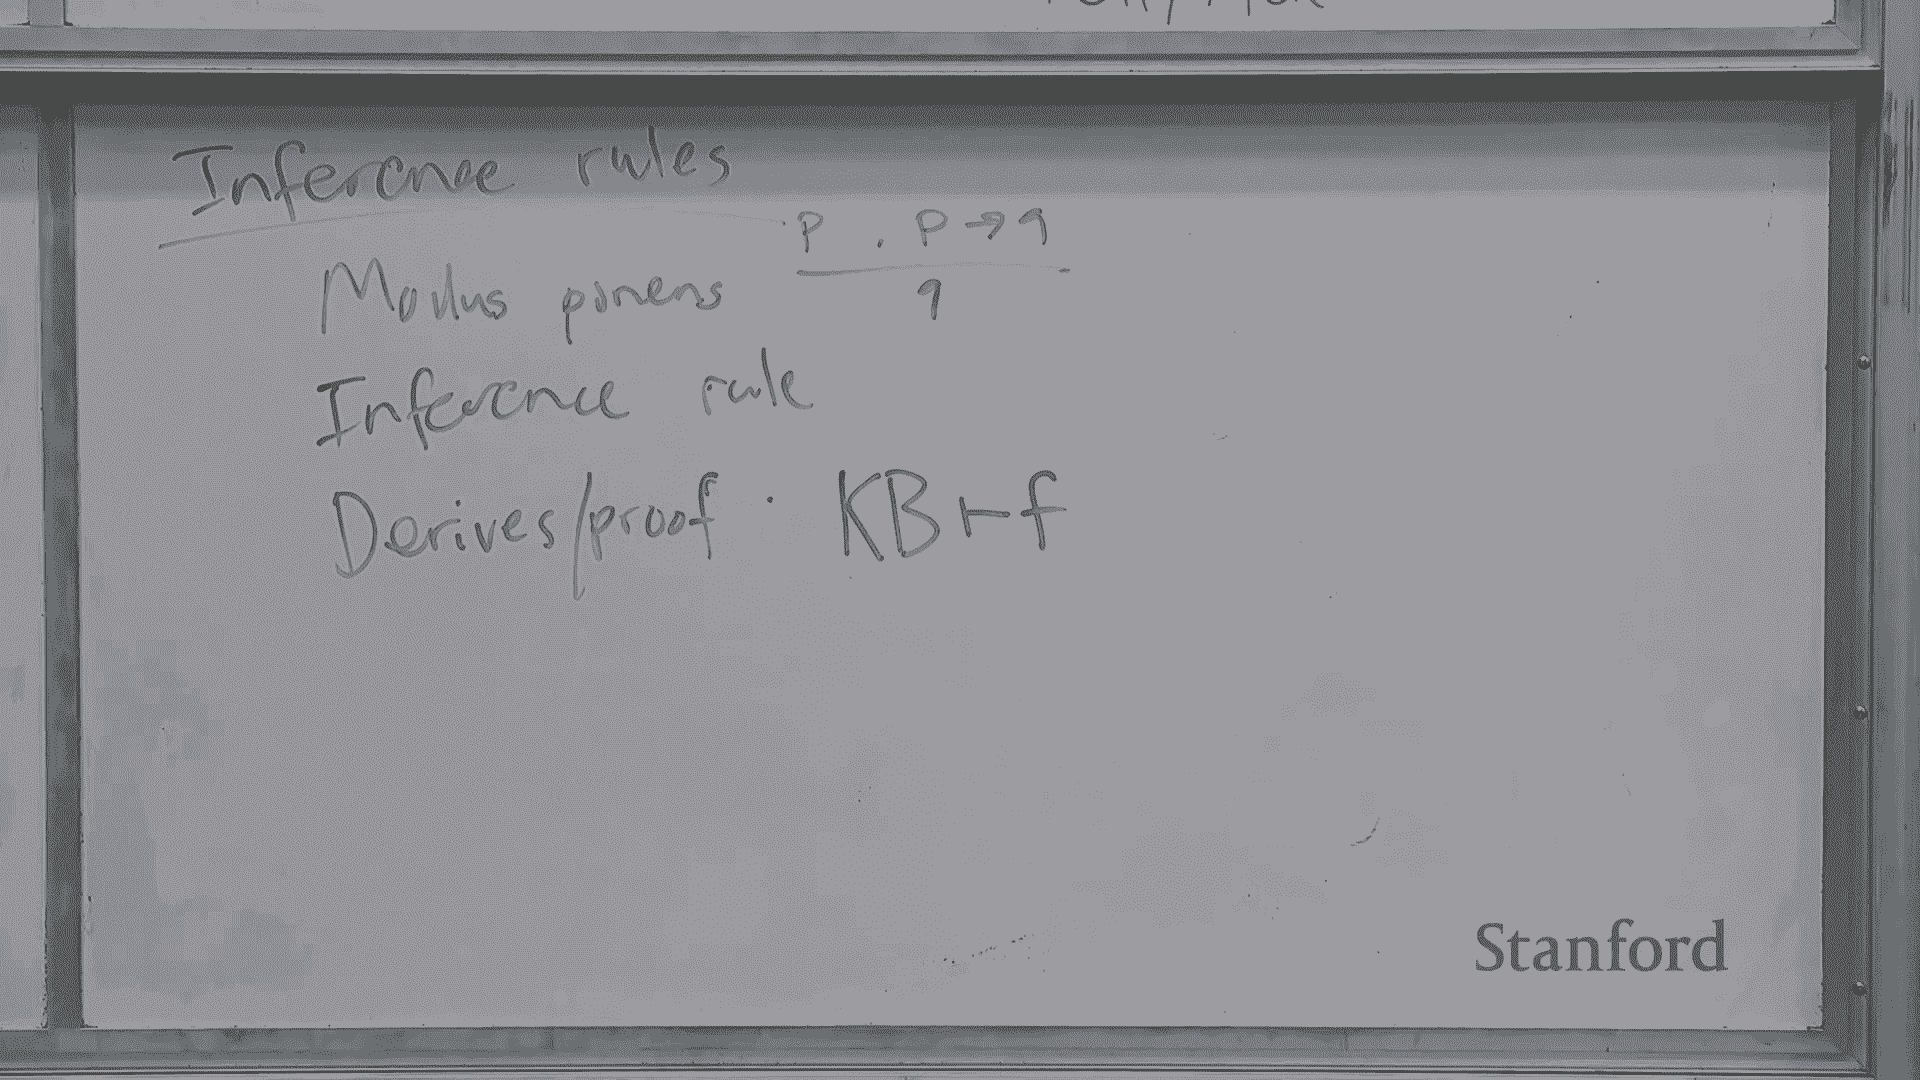 Inference rules
p , p → q
Modus ponens
q
Inference rule
Derives/proof . KB ⊢ f
Stanford